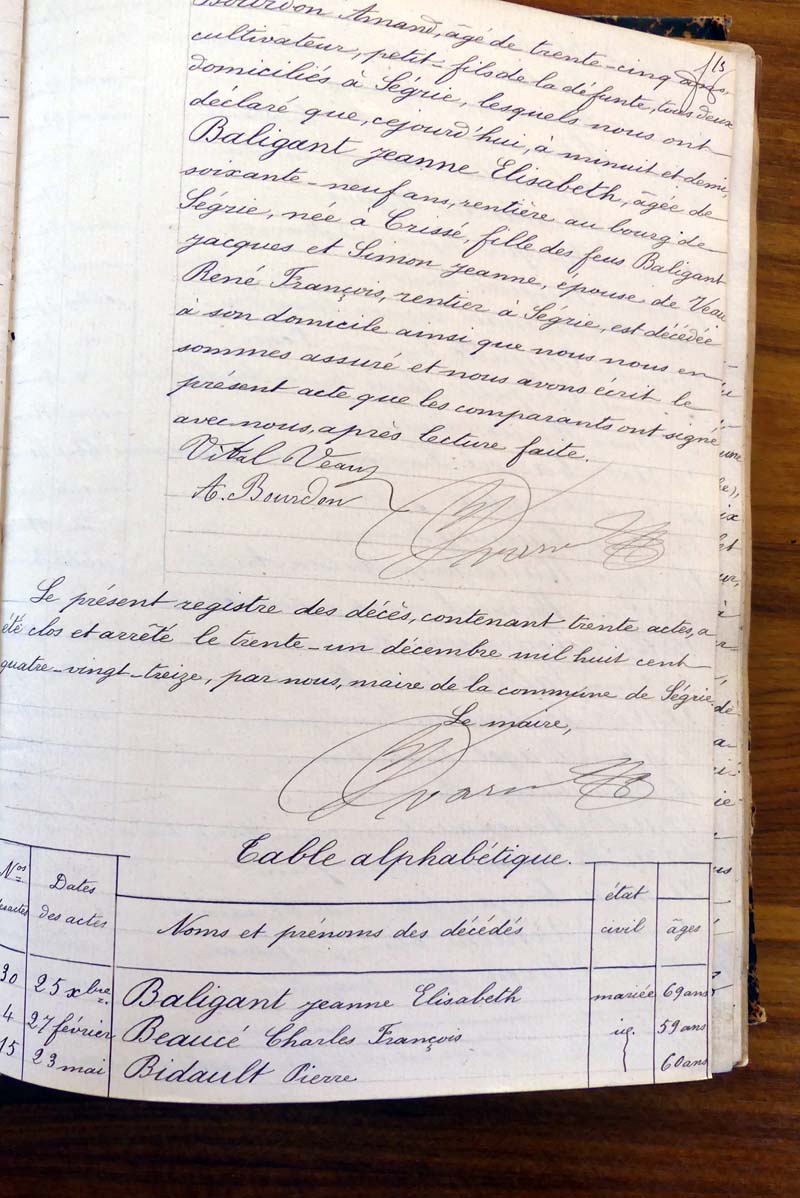 Bourdon Amand, âgé de trente-cinq ans,
15
cultivateur, petit-fils de la défunte, tous deux
domiciliés à Ségrie, lesquels nous ont
déclaré que, cejourd'hui, à minuit et demi,
Baligant Jeanne Elisabeth, âgée de
soixante-neuf ans, rentière au bourg de
Ségrie, née à Crissé, fille des feus Baligant
Jacques et Simon Jeanne, épouse de Veau
René François, rentier à Ségrie, est décédée
à son domicile ainsi que nous nous en
sommes assuré et nous avons écrit le
présent acte que les comparants ont signé
avec nous, après lecture faite.
Vital Veau
A. Bourdon
Le présent registre des décès, contenant trente actes, a
été clos et arrêté le trente-un décembre mil huit cent
quatre-vingt-treize, par nous, maire de la commune de Ségrie.
Le maire,
Table alphabétique.
Nos
Dates des actes
Noms et prénoms des décédés
état civil
âges
30 25 xbre Baligant Jeanne Elisabeth mariée 69 ans
4 27 février Beaucé Charles François id. 59 ans
15 23 mai Bidault Pierre 60 ans